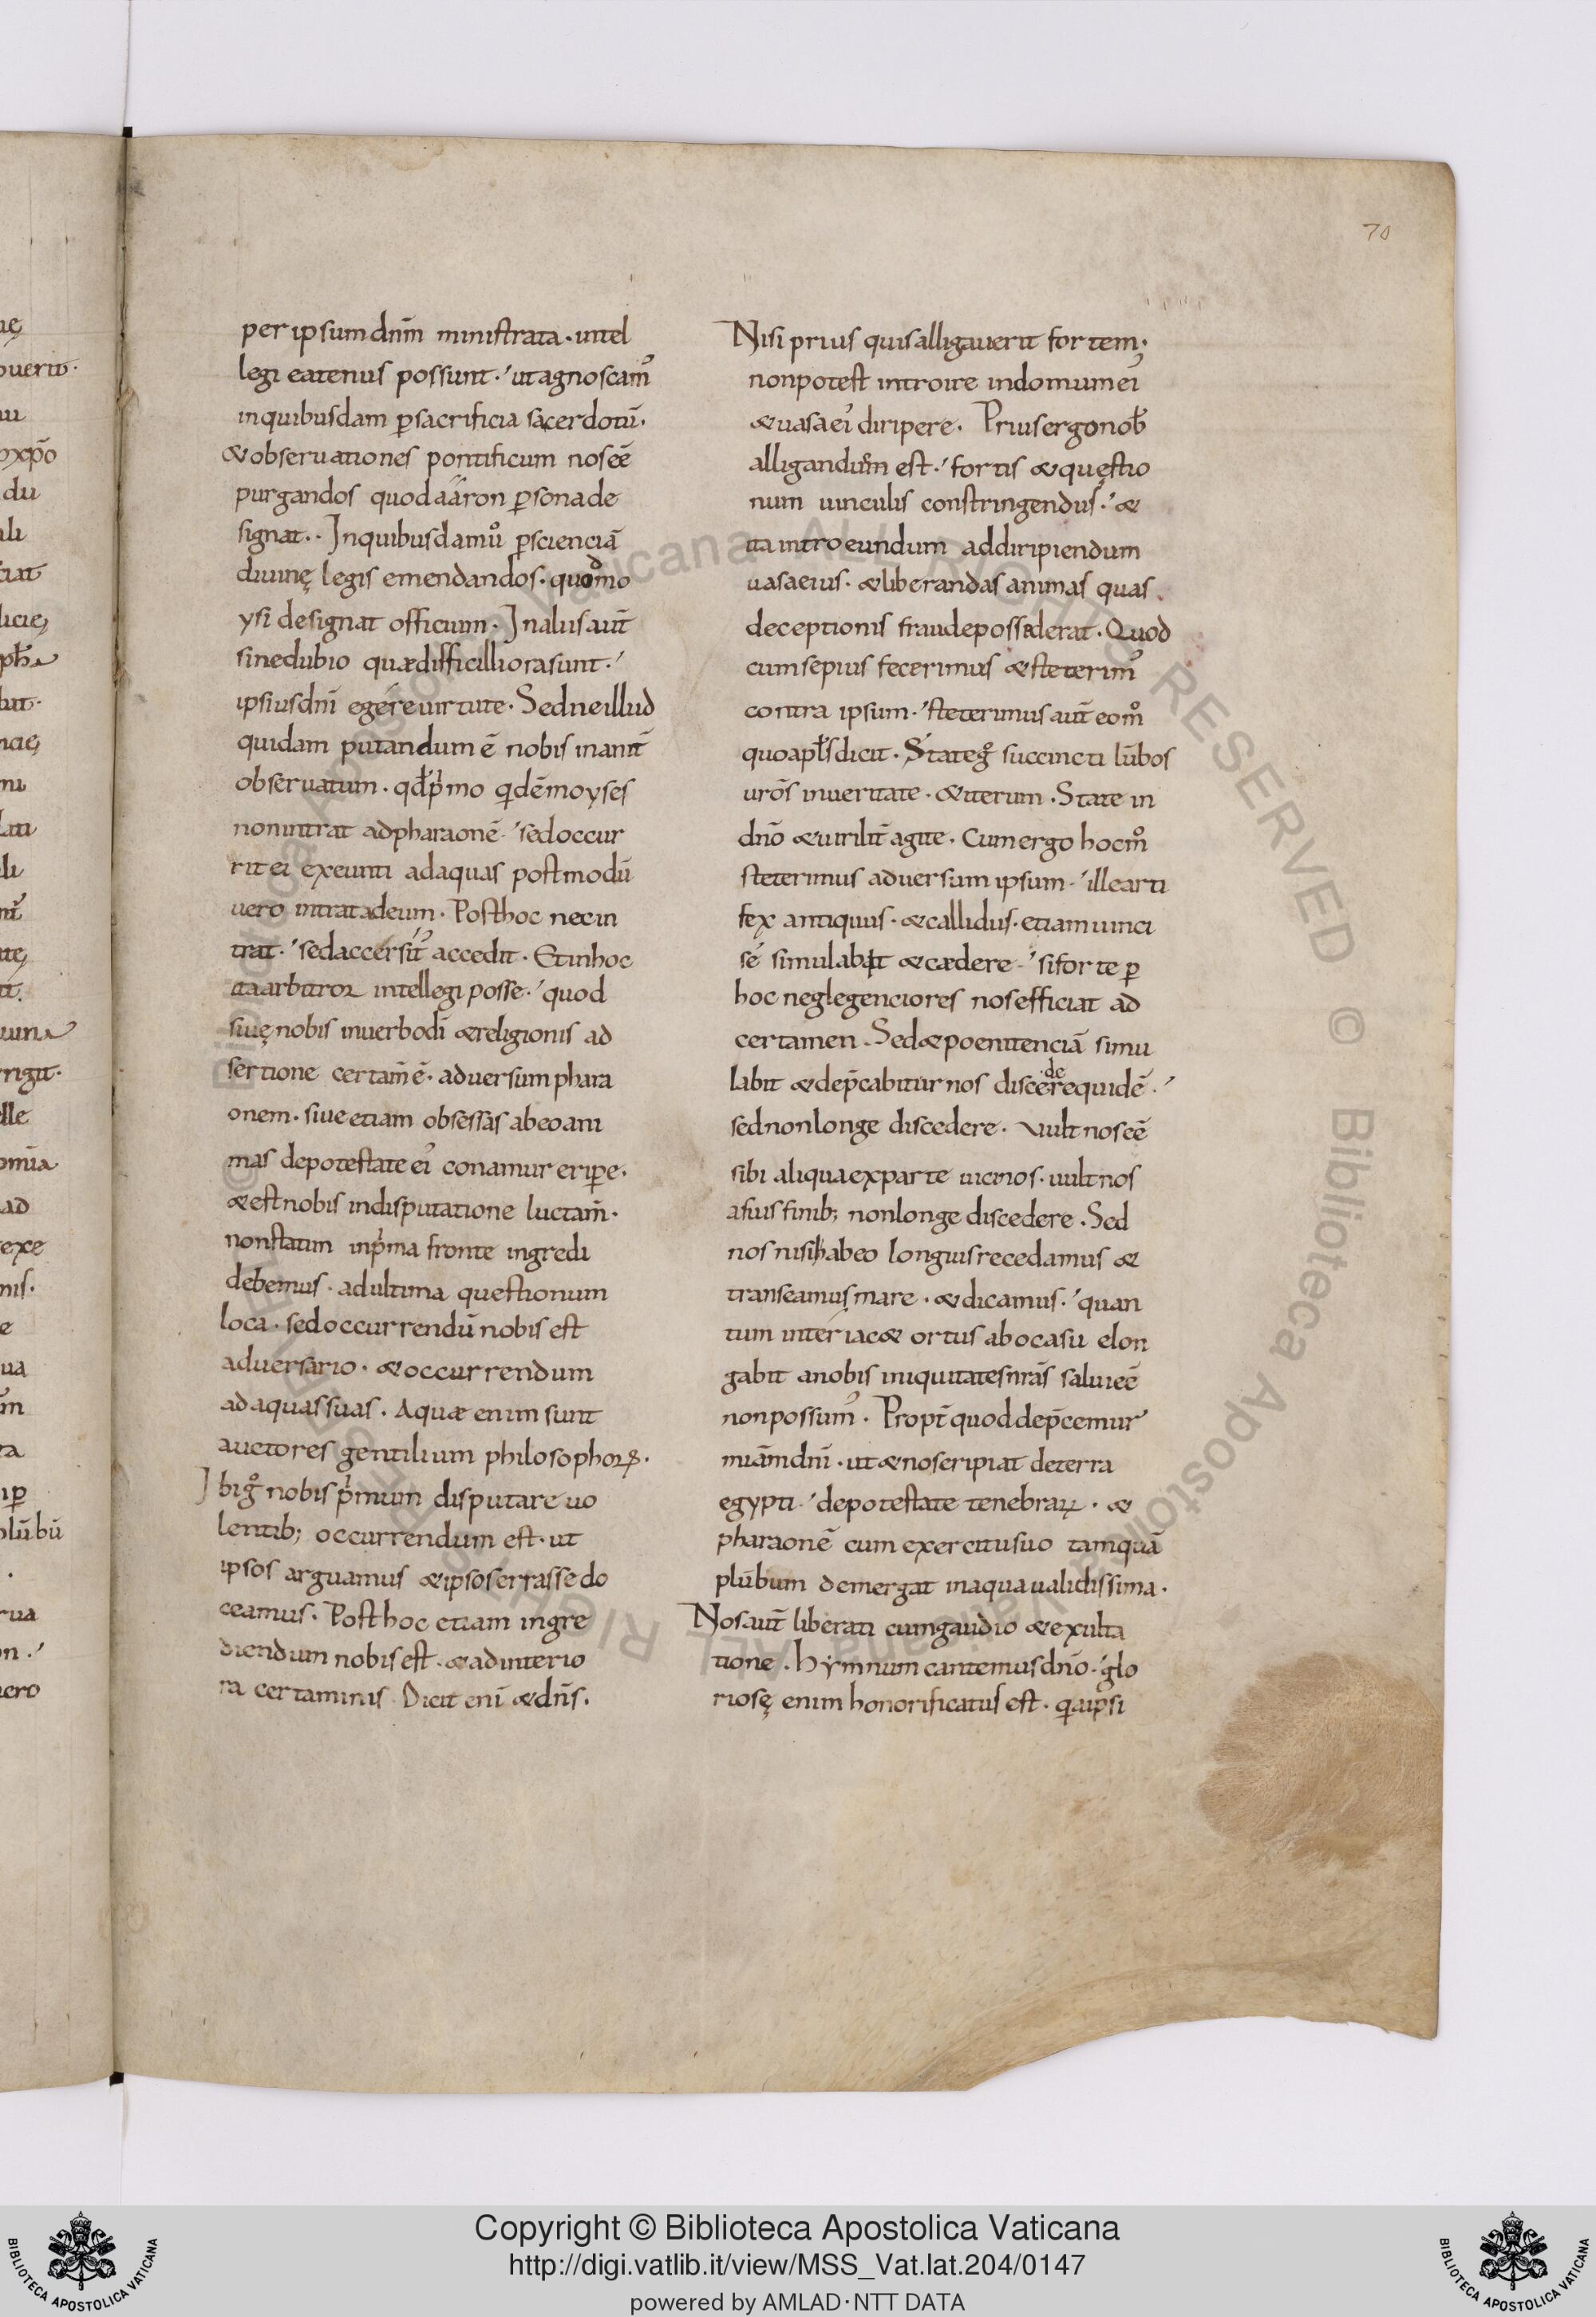 70
per ipsum dnm̄ ministrata · intel
legi eatenus possunt · ut agnoscam᾽
in quibusdam ꝑ sacrificia sacerdotū ·
& obseruationes pontificum nos eē
purgandos quod aaron ꝑsona de
signat · In quibusdam uͦ ꝑ scienciā
diuinę legis emendandos · quod mo
ysi designat officium · In aliis aut̄
sine dubio quæ difficilliora sunt ·
ipsius dnī egere uirtute · Sed ne illud
quidam putandum ē nobis inanit̄
obseruatum · qđ pͥmo qͥdē moyses
non intrat ad pharaonē · sed occur
rit ei exeunti ad aquas postmodū
uero intrat ad eum · Post hoc nec in
trat · sed accersit᾽ accedit · Et in hoc
ita arbitror intellegi posse · quod
siuę nobis in uerbo dī & religionis ad
sertione certam̄ ē · aduersum phara
onem · siue etiam obsessas ab eo ani
mas de potestate ei᾽ conamur eriꝑe ·
& est nobis in disputatione luctam̄ ·
non statim in pͥma fronte ingredi
debemus · ad ultima questionum
loca · sed occurrendū nobis est
aduersario · & occurrendum
ad aquas suas · Aquæ enim sunt
auctores gentilium philosophoꝝ ·
Ibi gͦ nobis pͥmum disputare uo
lentib; occurrendum est · ut
ipsos arguamus & ipsos errasse do
ceamus · Post hoc etiam ingre
diendum nobis est · & ad interio
ra certaminis Dicit enī & dn̄s ·
Nisi prius quis alligauerit fortem ·
non potest introire in domum ei᾽
& uasa ei᾽ diripere · Prius ergo nob̄
alligandum est · fortis & quęstio
num uinculis constringendus · &
ita introeundum ad diripiendum
uasa eius · & liberandas animas quas
deceptionis fraude possederat · Quod
cum sepius fecerimus & steterim᾽
contra ipsum · steterimus aut̄ eo mͦ
quo apl̄s dicit · State gͦ succincti lūbos
urōs in ueritate · & iterum · State in
dnō & uirilit̄ agite · Cum ergo hoc mͦ
steterimus aduersum ipsum · ille arti
fex antiquus · & callidus · etiam uinci
se simulabit & cædere · si forte ꝑ
hoc neglegenciores nos efficiat ad
certamen · Sed & poenitenciā simu
labit & dep̄cabitur nos discedere quidē ·
sed non longe discedere · Vult nos eē
sibi aliqua ex parte uicinos · uult nos
a suis finib; non longe discedere · Sed
nos nisi ab eo longius recedamus &
transeamus mare · & dicamus · quan
tum interiac& ortus ab ocasu elon
gabit a nobis iniquitates nrās salui eē
non possum᾽ · Propt̄ quod dep̄cemur
miām dnī · ut & nos eripiat de terra
egypti · de potestate tenebraꝝ · &
pharaonē cum exercitu suo tamquā
plūbum demergat in aqua ualidissima ·
Nos aut̄ liberati cum gaudio & exulta
tione · hymnum cantemus dnō · glo
riosę enim honorificatus est · qͥa ipsi
Copyright © Biblioteca Apostolica Vaticana
http://digi.vatlib.it/view/MSS_Vat.lat.204/0147
powered by AMLAD·NTT DATA
BIBLIOTECA APOSTOLICA VATICANA
BIBLIOTECA APOSTOLICA VATICANA